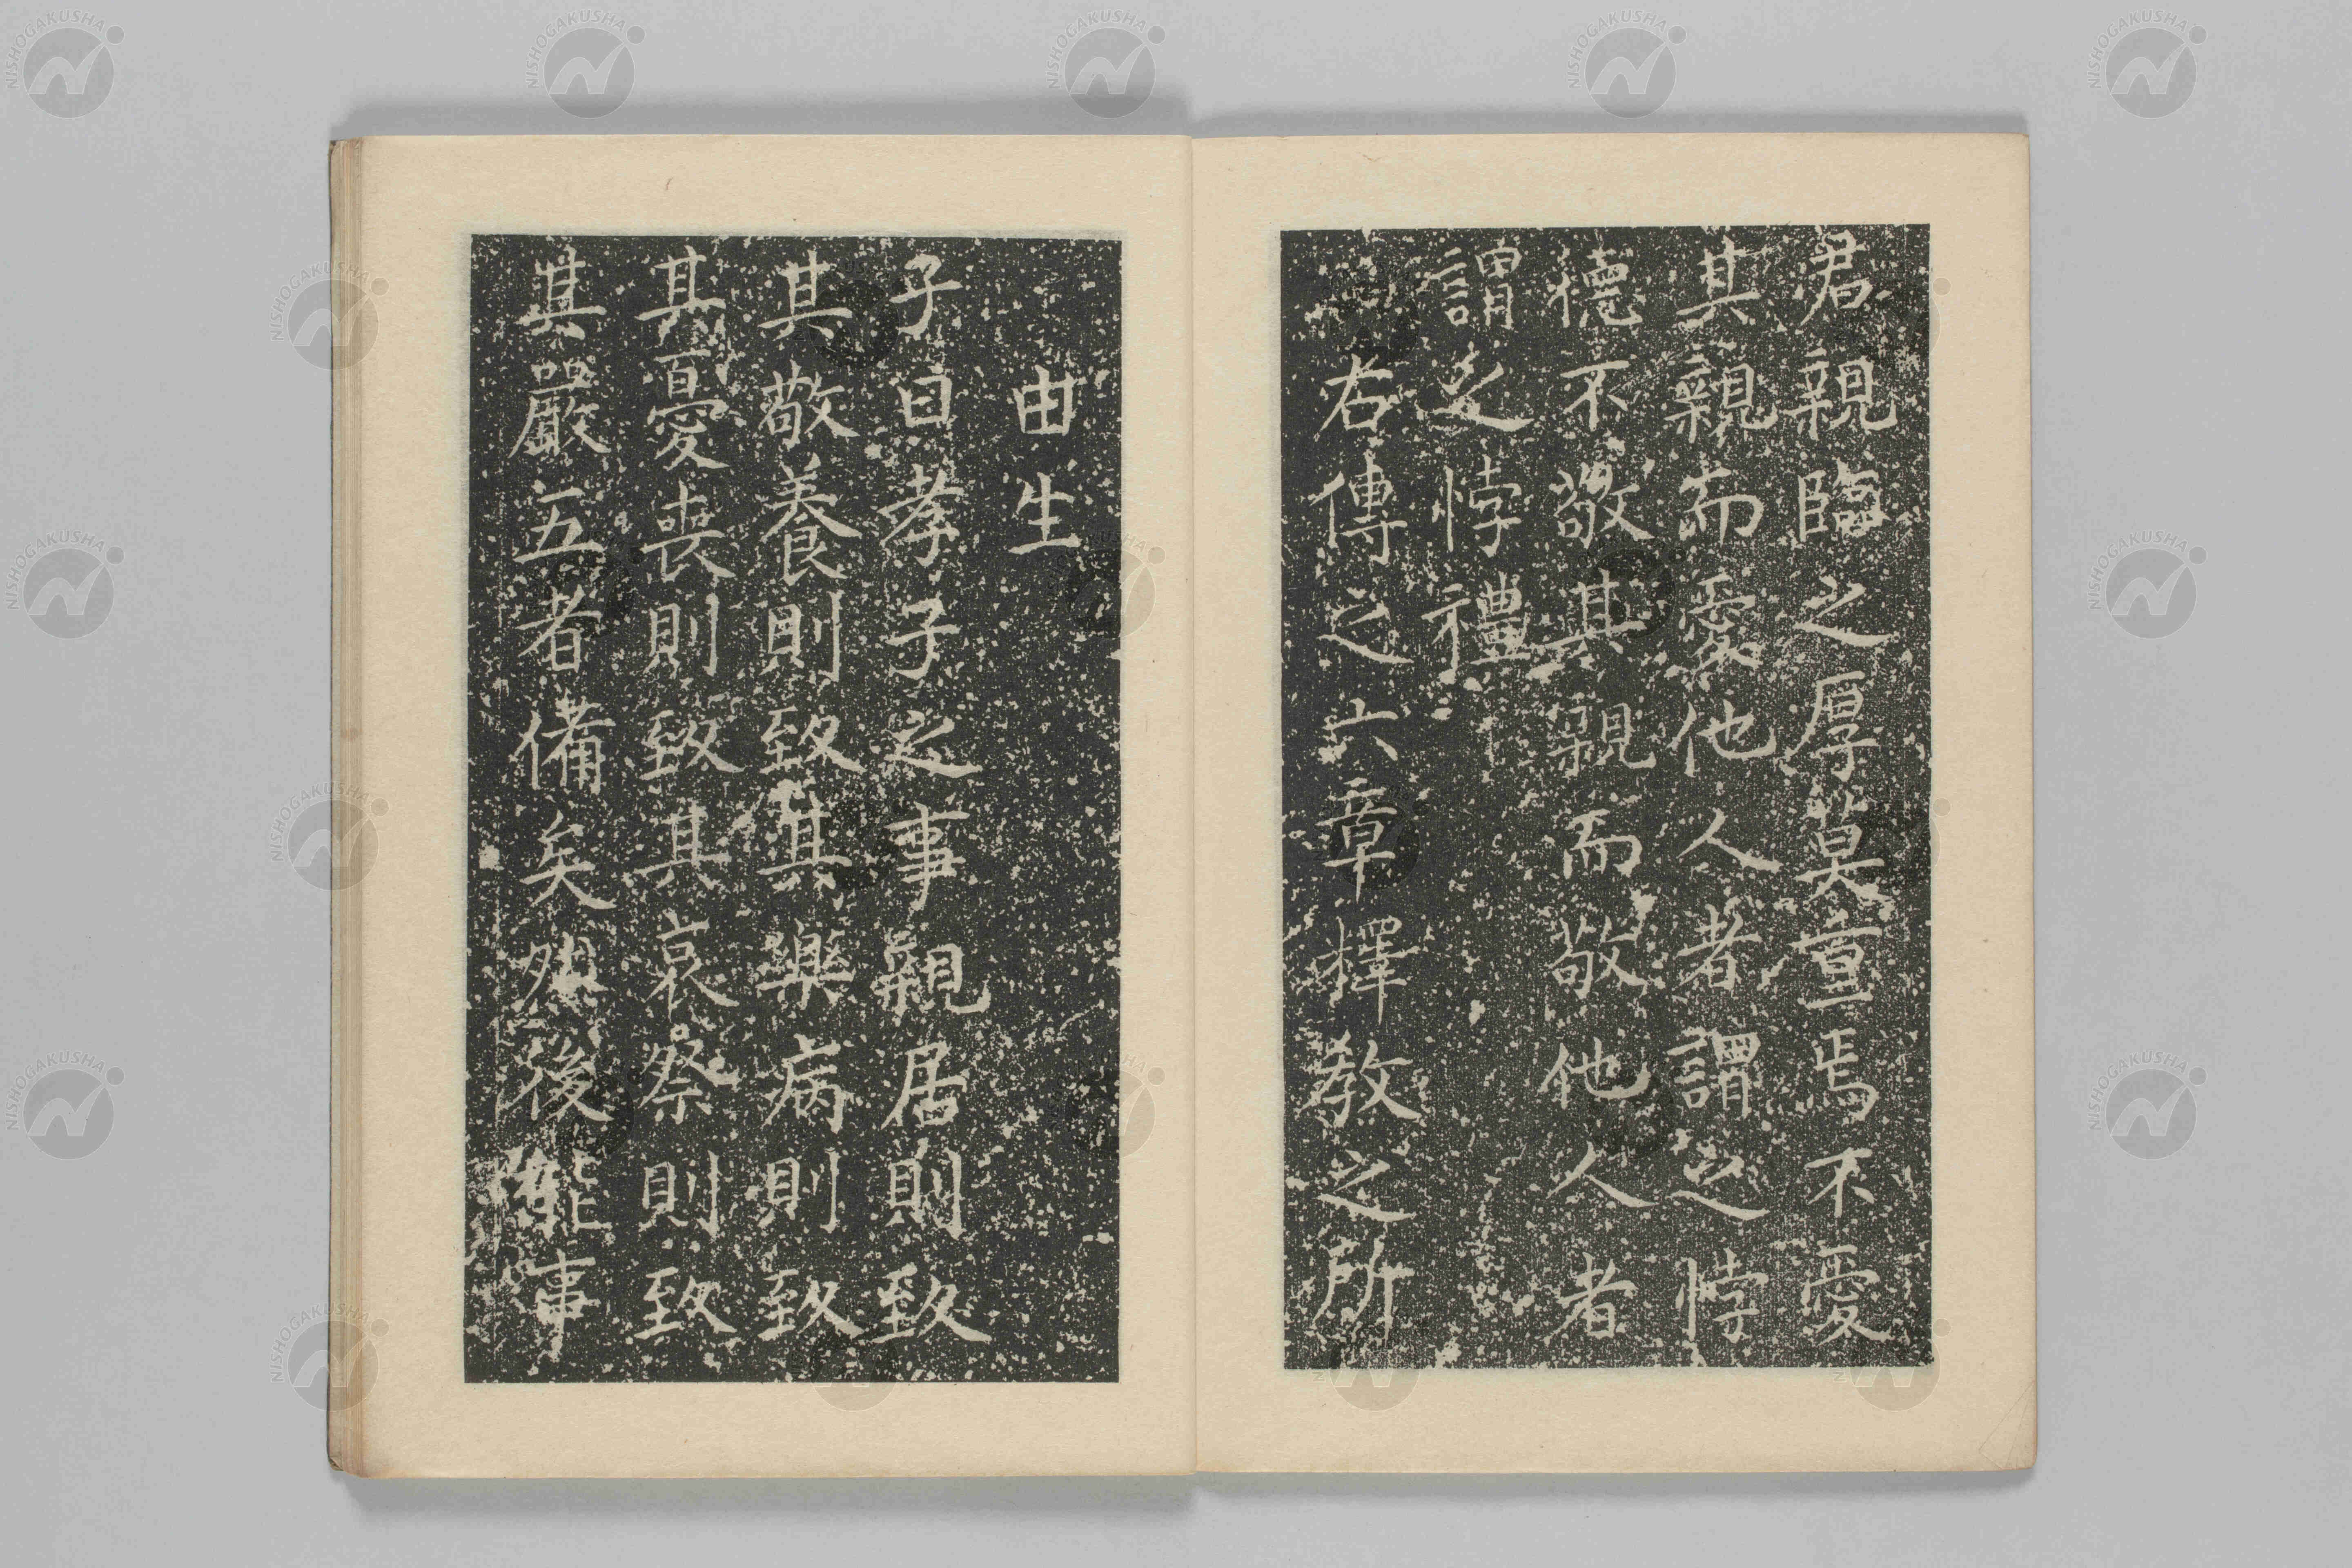 君親臨之厚莫重焉不愛
其親而愛他人者謂之悖
德不敬其親而敬他人者
謂之悖禮
右傳之六章釋教之所
由生
子曰孝子之事親居則致
其敬養則致其樂病則致
其憂喪則致其哀祭則致
其嚴五者備矣然後能事
NISHOGAKUSHA